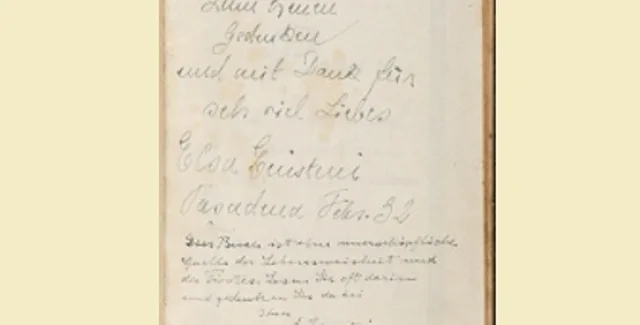 Zum treuen
Gedenken
und mit Dank für
sehr viel Liebes
Elsa Einstein
Pasadena Febr. 32
Dies Buch ist eine unerschöpfliche
Quelle der Lebensweisheit und
des Trostes. Lesen Sie oft darin
und gedenken Sie dabei
Ihres
A. Einstein